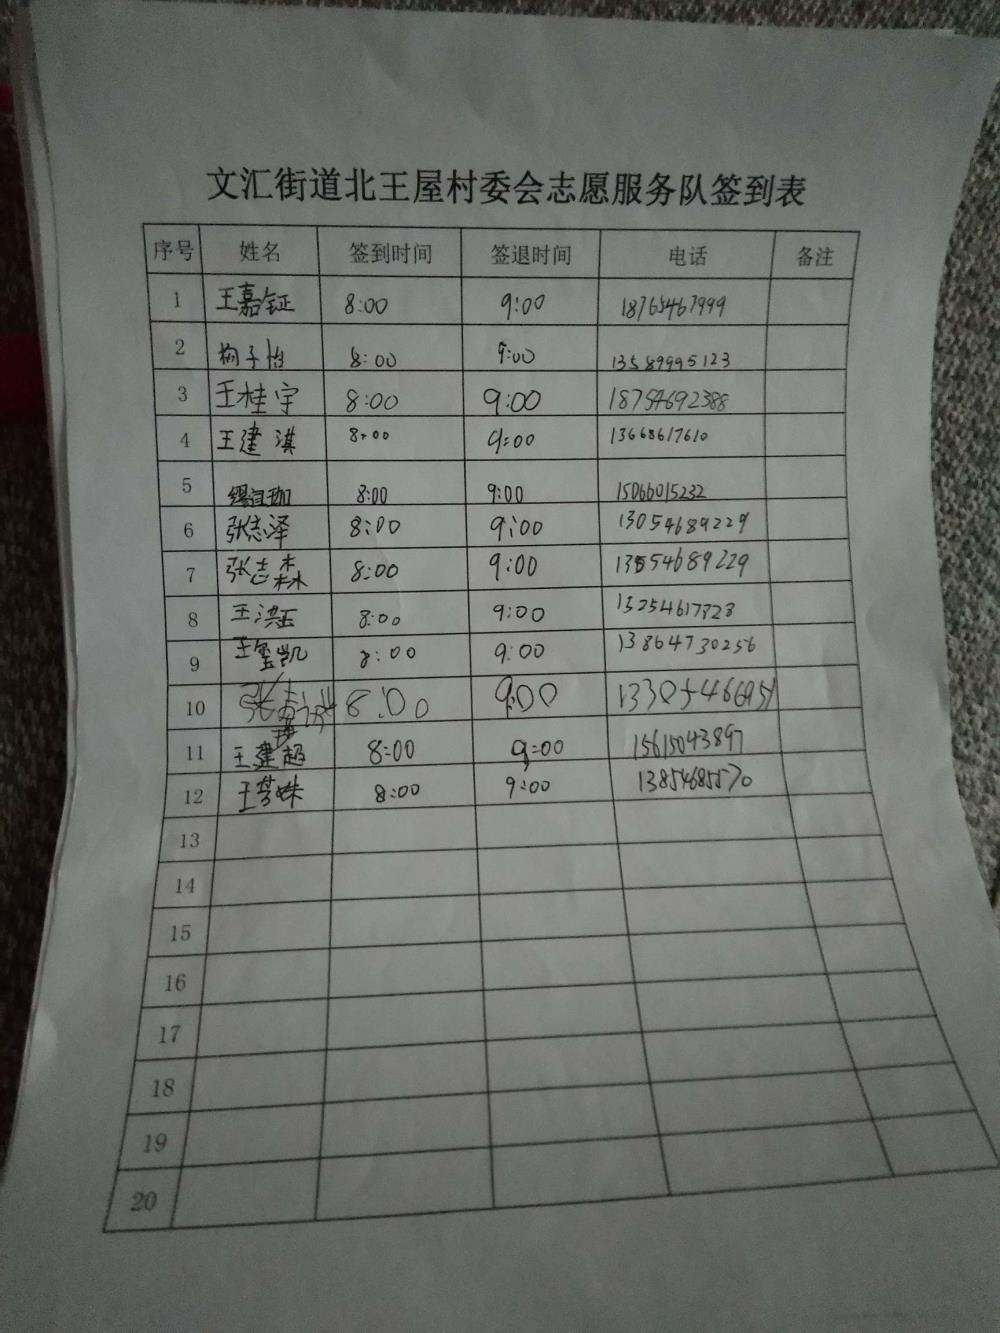 文汇街道北王屋村委会志愿服务队签到表
序号 姓名 签到时间 签退时间 电话 备注
1 王嘉钲 8:00 9:00 18765467999
2 子怡 8:00 9:00 13589995123
3 王桂宇 8:00 9:00 18754692388
4 王建淇 8:00 9:00 13668617610
5 8:00 9:00 15066015232
6 张志泽 8:00 9:00 13054689229
7 张志森 8:00 9:00 13054689229
8 王洪玉 8:00 9:00 13254617828
9 王玺凯 8:00 9:00 13864730256
10 8:00 9:00
11 王建超 8:00 9:00 15615043897
12 王梦姝 8:00 9:00 13854685570
13
14
15
16
17
18
19
20